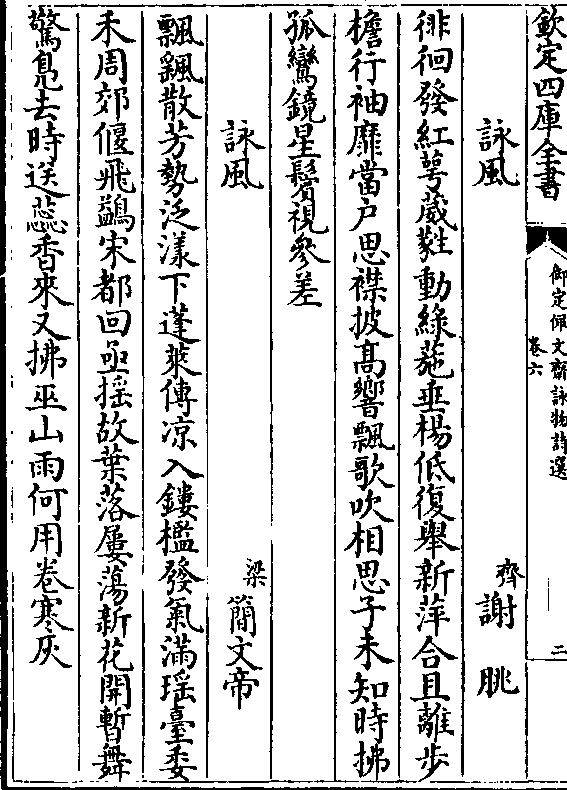 欽定四庫全書
御定佩文齋詠物詩選
卷六
二
詠風
齊謝朓
徘徊發紅萼葳蕤動綠葹垂楊低復舉新萍合且離步
檐行袖靡當户思襟披高響飄歌吹相思子未知時拂
孤鸞鏡星鬢視參差
詠風
梁簡文帝
飄颻散芳勢泛漾下蓬萊傳凉入鏤檻發氣滿瑶臺委
禾周郊偃飛鷁宋都回亟揺故葉落屢蕩新花開暫舞
驚鳬去時送蕊香來又拂巫山雨何用卷寒灰